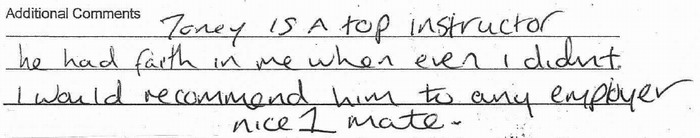 Additional Comments Toney IS A top instructor
he had faith in me when even i didnt
I would recommend him to any employer
nice 1 mate.